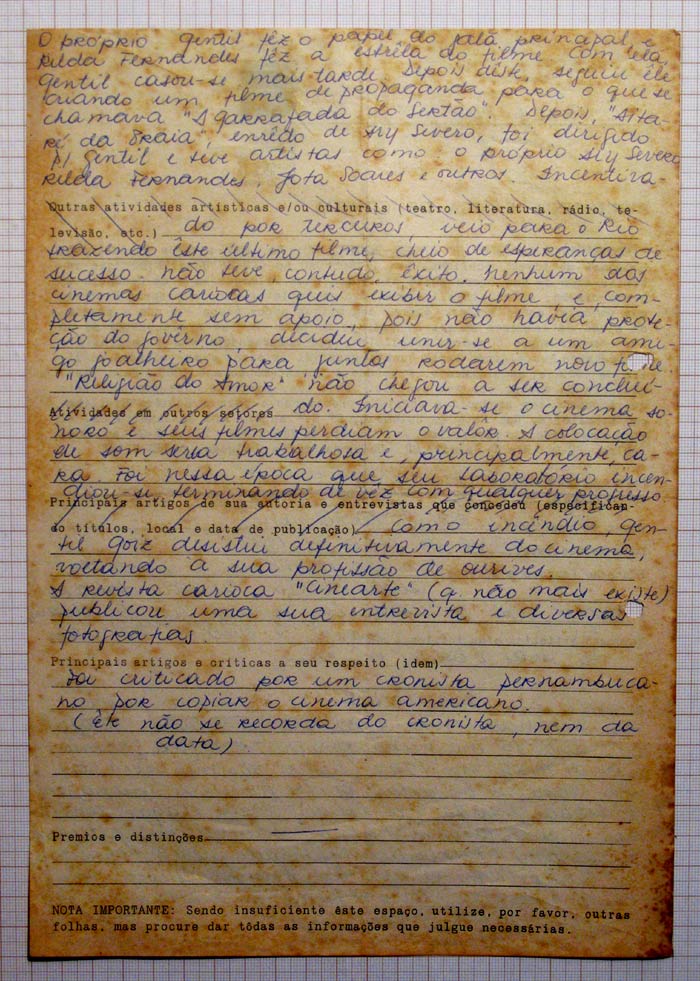 O próprio Gentil fêz o papel do galã principal e
Rilda Fernandes fêz a estrêla do filme com ela
Gentil casou-se mais tarde. Depois dêste, seguiu êle
criando um filme de propaganda para o que se
chamava "A garrafada do Sertão". Depois, "Aita-
ré da Praia", enrêdo de Ary Severo, foi dirigido
p/ Gentil e teve artistas como o próprio Ary Severo
Rilda Fernandes, Jota Soares e outros. Incentiva-
Outras atividades artísticas e/ou culturais (teatro, literatura, rádio, te-
levisão, etc.) do por terceiros, veio para o Rio
trazendo êste último filme, cheio de esperanças de
sucesso. Não teve, contudo, êxito. Nenhum dos
cinemas cariocas quis exibir o filme, e, com-
pletamente sem apoio, pois não havia prote-
ção do govêrno, decidiu unir-se a um ami-
go joalheiro para juntos rodarem novo filme.
"Religião do Amor" não chegou a ser concluí-
Atividades em outros setores do. Iniciava-se o cinema so-
noro e seus filmes perdiam o valôr. A colocação
de som seria trabalhosa e, principalmente, ca-
ra. Foi nessa época que seu laboratório incen-
diou-se terminando de vêz com qualquer progresso.
Principais artigos de sua autoria e entrevistas que concedeu (especifican-
do títulos, local e data de publicação) Como incêndio, Gen-
til Roiz desistiu definitivamente do cinema,
voltando à sua profissão de ourives.
A revista carioca "Cinearte" (q. não mais existe)
publicou uma sua entrevista e diversas
fotografias.
Principais artigos e críticas a seu respeito (idem)
Foi criticado por um cronista pernambuca-
no por copiar o cinema americano.
(Êle não se recorda do cronista, nem da
data)
Premios e distinções
NOTA IMPORTANTE: Sendo insuficiente êste espaço, utilize, por favor, outras
folhas, mas procure dar tôdas as informações que julgue necessárias.